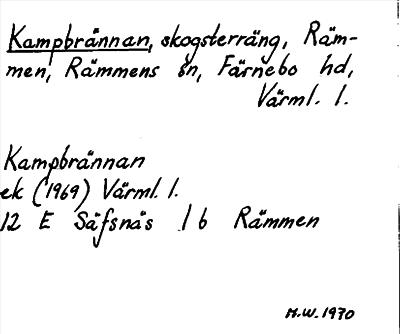 Kampbrännan, skogsterräng, Räm-
men, Rämmens sn, Färnebo hd,
Värml. l.
Kampbrännan
ek (1969) Värml. l.
12 E Säfsnäs 1 b Rämmen
M.W. 1970